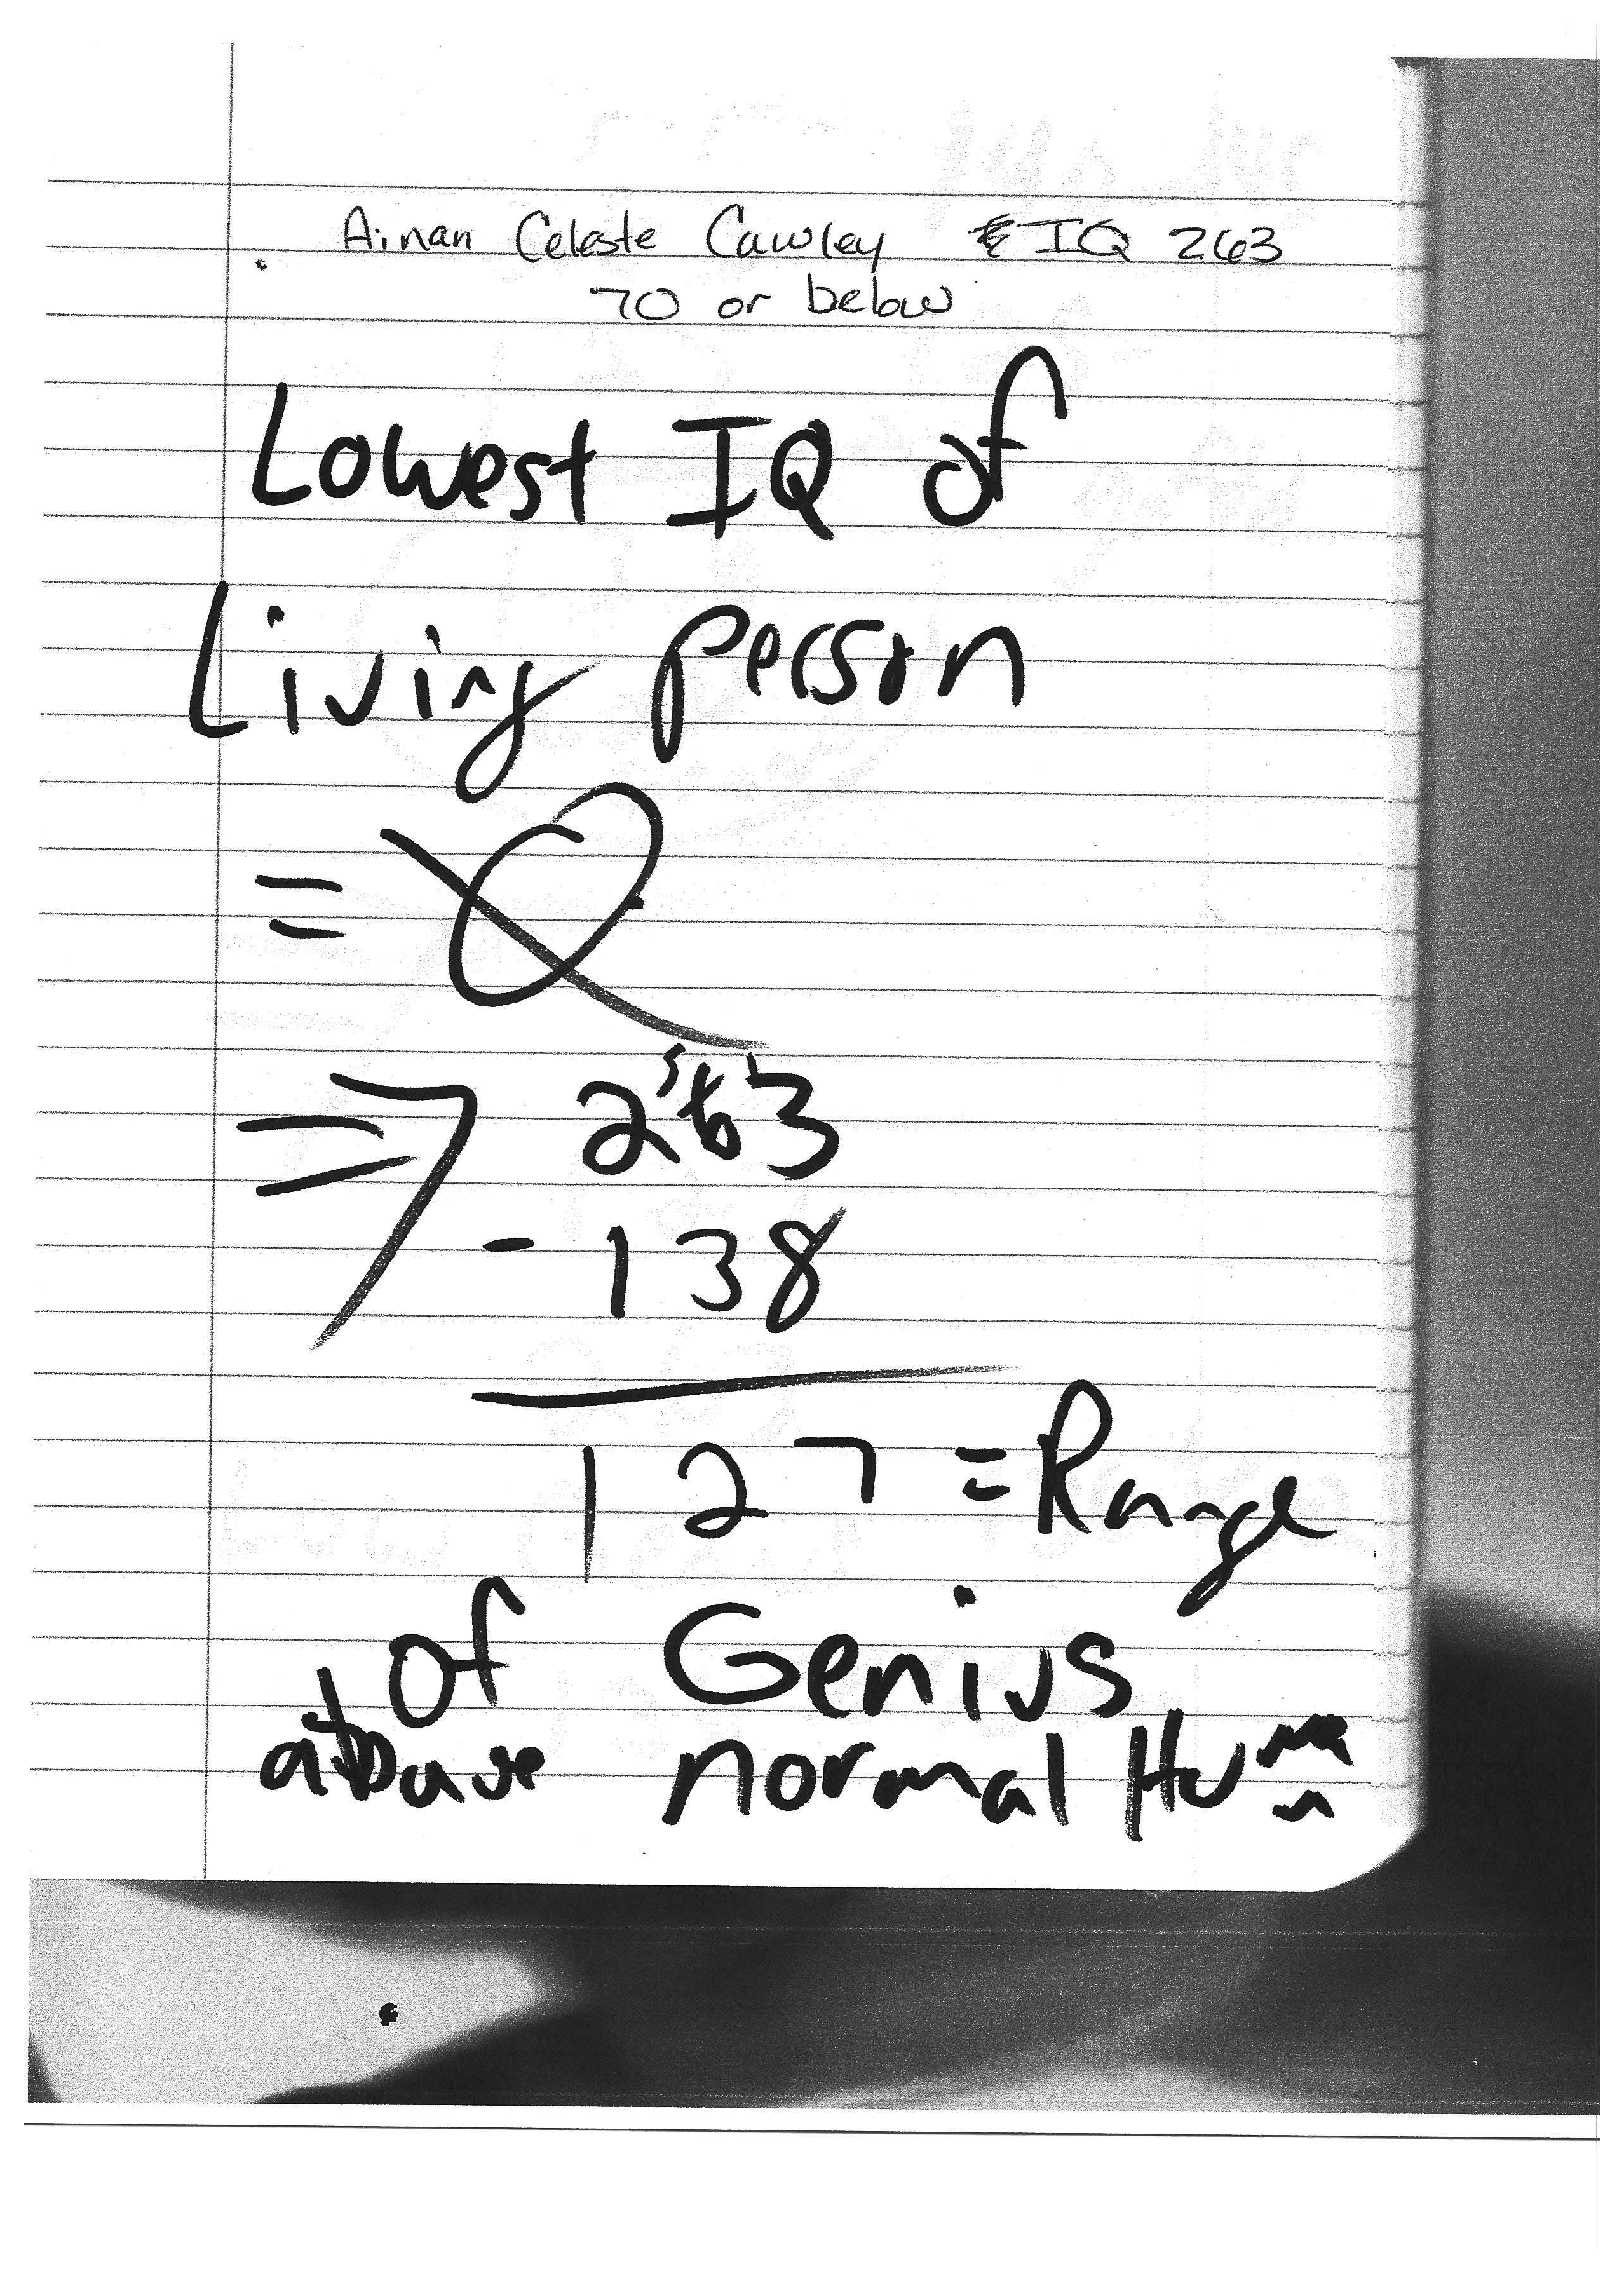 Ainan Celeste Cawley IQ 263
70 or below
Lowest IQ of
Living person
= 0
=> 263
- 138
127 = Range
of Genius
above normal Human